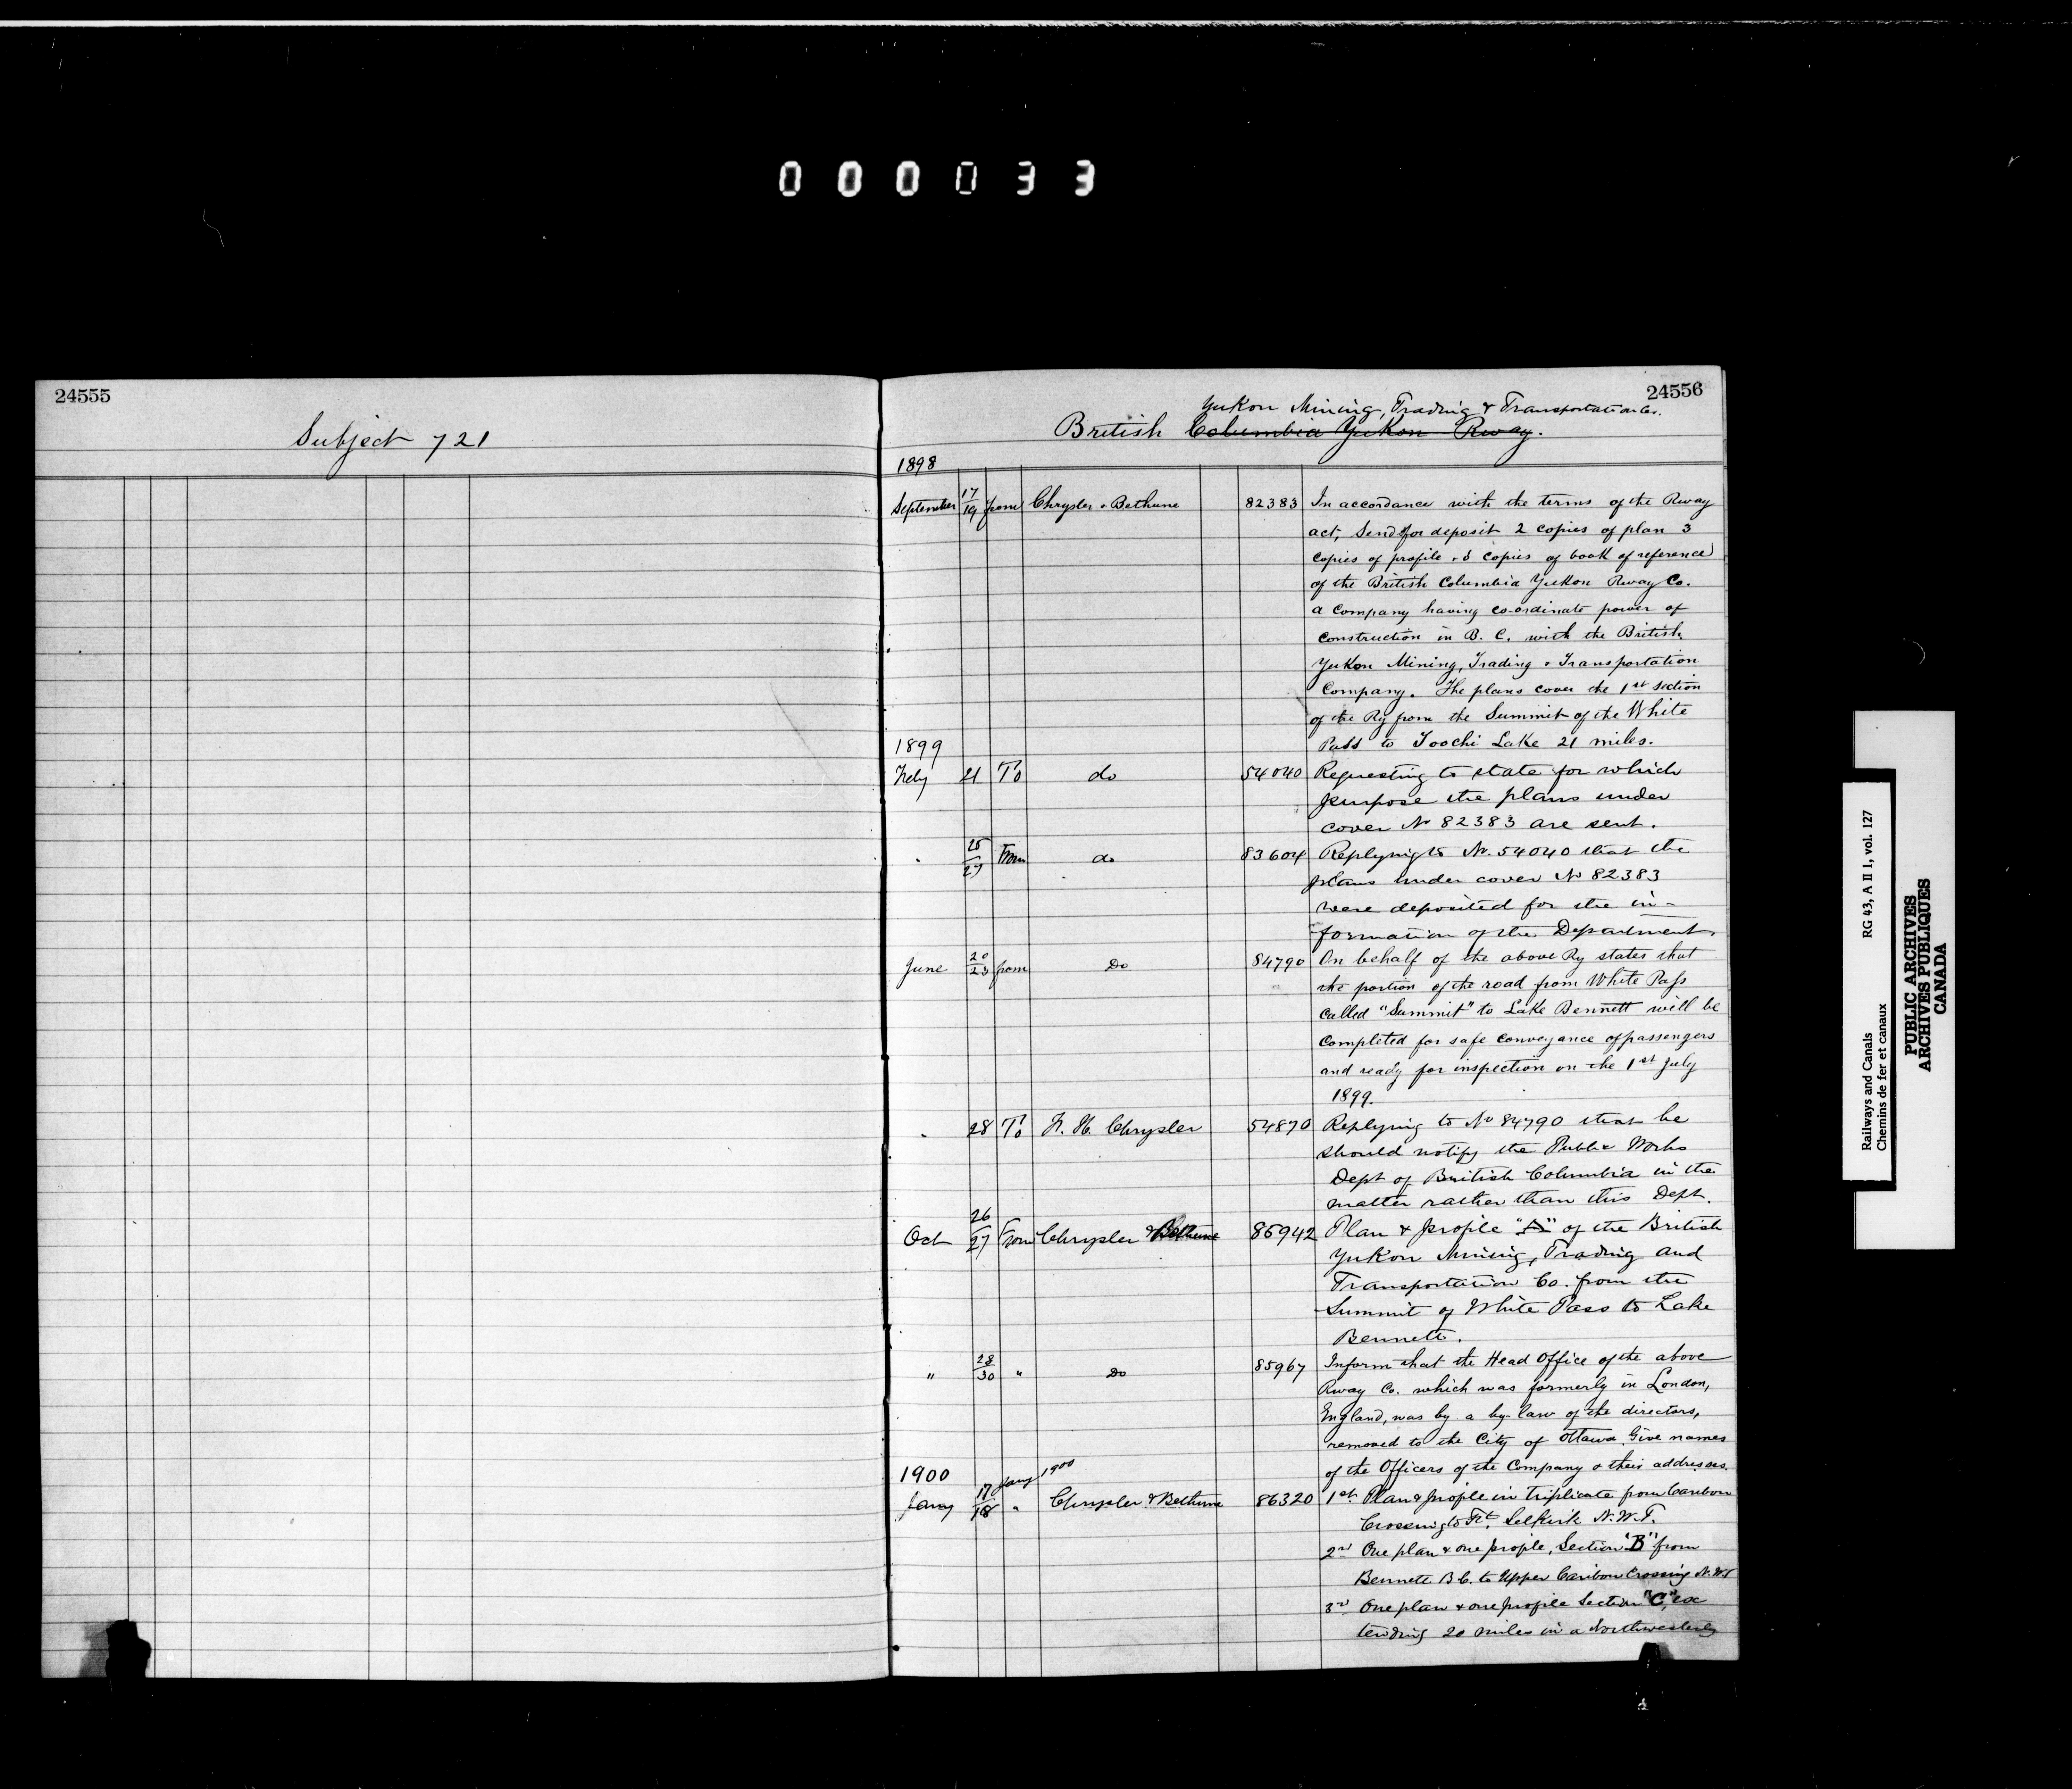 000033
24555
Subject 721
24556
Yukon Mining, Trading & Transportation Co.
British Columbia Yukon Rway.
1898
September 17/19 from Chrysler & Bethune 82383 In accordance with the terms of the Rway
act, Send for deposit 2 copies of plan 3
copies of profile & 3 copies of book of reference
of the British Columbia Yukon Rway Co.
a Company having co-ordinate power of
Construction in B. C. with the British
Yukon Mining, Trading & Transportation
Company. The plans cover the 1st section
of the Ry from the Summit of the White
Pass to Toochi Lake 21 miles.
1899
Feby 21 To do 54040 Requesting to state for which
purpose the plans under
cover No 82383 are sent.
" 25/27 From do 83604 Replying to No. 54040 that the
plans under cover No 82383
were deposited for the in-
formation of the Department.
June 20/23 from Do 84790 On behalf of the above Ry states that
the portion of the road from White Pass
called "Summit" to Lake Bennett will be
completed for safe conveyance of passengers
and ready for inspection on the 1st July
1899.
" 28 To F. H. Chrysler 54870 Replying to No 84790 that he
should notify the Public Works
Dept of British Columbia in the
matter rather than this Dept.
Oct 26/27 From Chrysler & Bethune 85942 Plan & profile "A" of the British
Yukon Mining, Trading and
Transportation Co. from the
Summit of White Pass to Lake
Bennett.
" 28/30 " Do 85967 Inform that the Head Office of the above
Rway Co. which was formerly in London,
England, was by a by-law of the directors,
removed to the City of Ottawa. Give names
of the Officers of the Company & their addresses.
1900
Jany 17/18 Jany 1900 " Chrysler & Bethune 86320 1st Plan & profile in triplicate from Caribou
Crossing to Ft. Selkirk N.W.T.
2nd One plan & one profile, Section "B" from
Bennett B.C. to Upper Caribou Crossing N.W.T
3rd One plan & one profile Section "C", ex
tending 20 miles in a Northwesterly
Railways and Canals RG 43, A II 1, vol. 127
Chemins de fer et canaux
PUBLIC ARCHIVES
ARCHIVES PUBLIQUES
CANADA